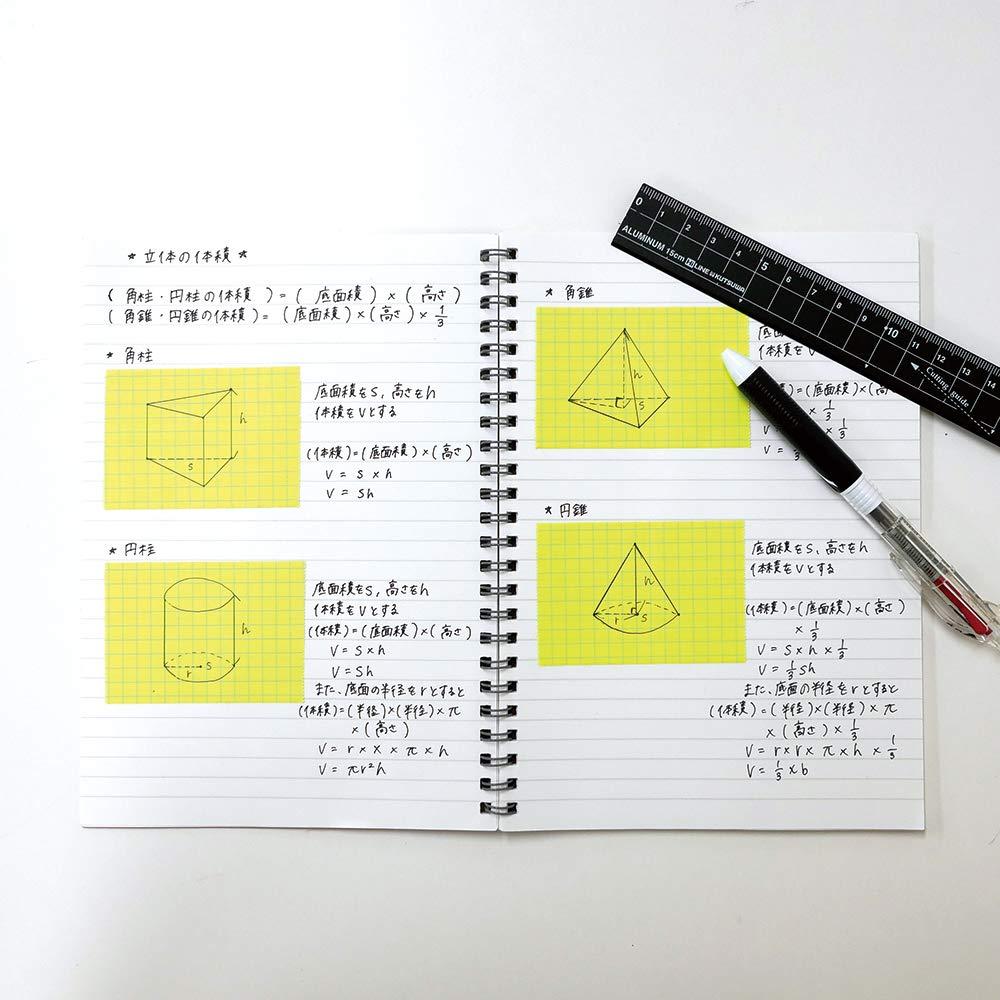 ★ 立体の体積 ★
( 角柱・円柱の体積 ) = ( 底面積 ) × ( 高さ )
( 角錐・円錐の体積 ) = ( 底面積 ) × ( 高さ ) × 1/3
★ 角柱
h
S
底面積をS, 高さをh
体積をVとする
(体積)=(底面積)×(高さ)
V = S × h
V = Sh
★ 円柱
h
S
r
底面積をS, 高さをh
体積をVとする
(体積)=(底面積)×(高さ)
V = S × h
V = Sh
また、底面の半径をrとすると
(体積)=(半径)×(半径)×π
×(高さ)
V = r × x × π × h
V = πr²h
★ 角錐
h
S
底面
体積をV
)=(底面積)×(高
× 1/3
V = × 1/3
V = 1/3
★ 円錐
h
r S
底面積をS, 高さをh
体積をVとする
(体積)=(底面積)×(高さ)
× 1/3
V = S × h × 1/3
V = 1/3 Sh
また、底面の半径をrとすると
(体積)=(半径)×(半径)×π
×(高さ)× 1/3
V = r × r × π × h × 1/3
V = 1/3 × b
0 1 2 3 4 5 6 7 8 9 10 11 12 13 14
ALUMINUM 15cm LINE by KUTSUWA
Cutting guide